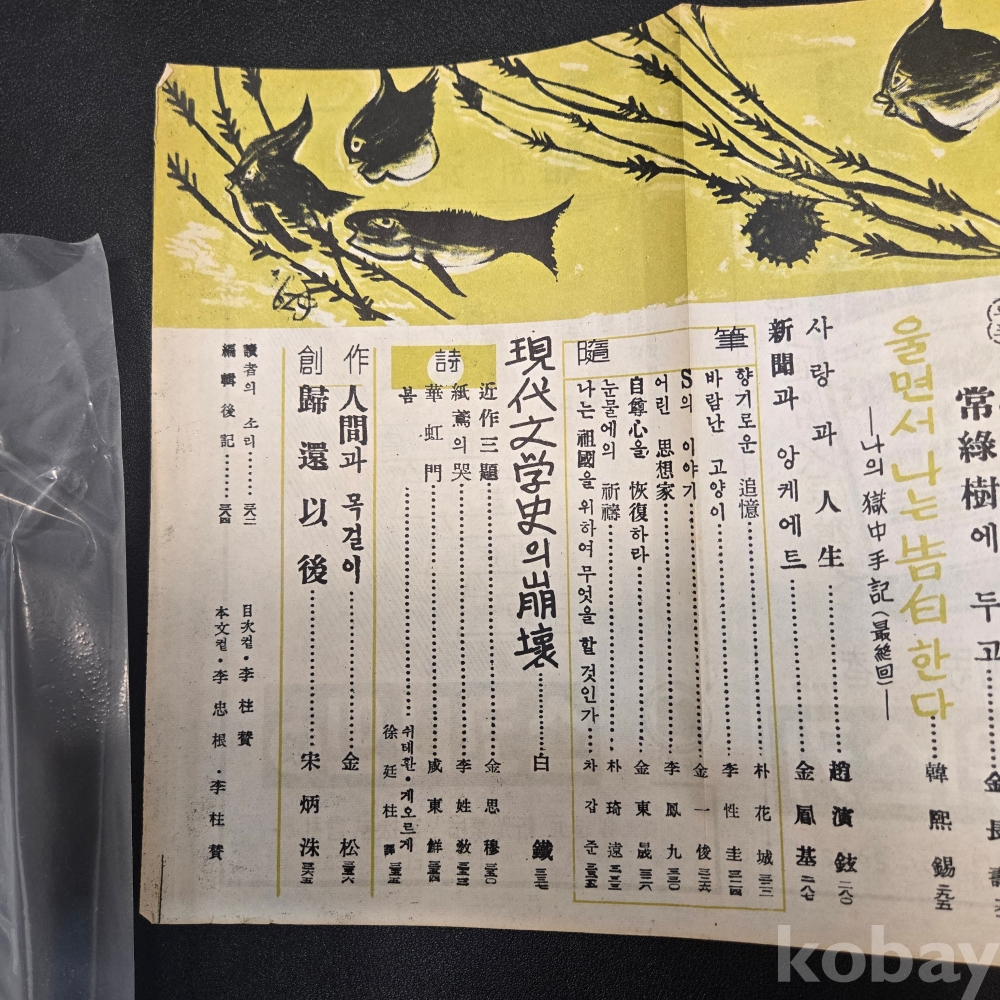 常綠樹에 두고 金長壽
울면서 나는 告白한다
―나의 獄中手記(最終回)― 韓熙錫 二九五
사랑과 人生 趙演鉉 二八〇
新聞과 앙케에트 金鳳基 二八七
隨筆
향기로운 追憶 朴花城
바람난 고양이 李性圭
S의 이야기 金一俊
어린 思想家 李鳳九
自尊心을 恢復하라 金東晟
눈물에의 祈禱 朴琦遠
나는 祖國을 위하여 무엇을 할 것인가 차갑준
現代文学史의 崩壞 白鐵
詩
近作三題 金思穆
紙鳶의 哭 李姓敎
華虹門 咸東鮮
봄 쉬테판·게오르게
徐廷柱 譯
創作
人間과 목걸이 金松
歸還以後 宋炳洙
讀者의 소리
編輯後記
目次컽·李柱贊
本文컽·李忠根·李柱贊
kobay